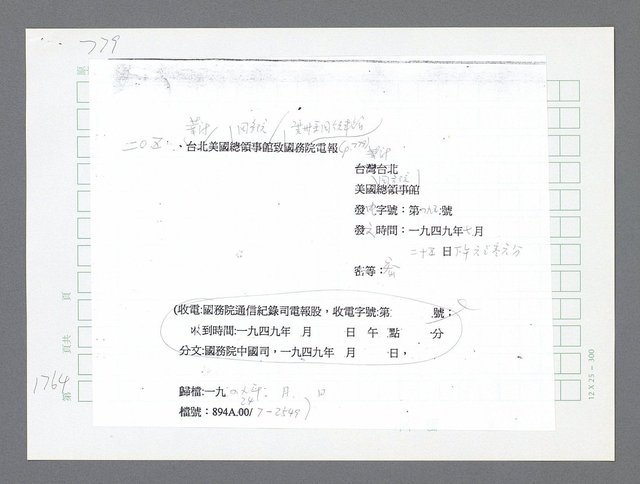 779
二〇五、台北美國總領事館致國務院電報
台灣台北
美國總領事館
發電字號：第 號
發文時間：一九四九年七月
二十五日下午六
密等：
(收電:國務院通信紀錄司電報股，收電字號:第 號；
收到時間:一九四九年 月 日 午 點 分
分文:國務院中國司，一九四九年 月 日，
歸檔:一九四九年 月 日
檔號：894A.00/7-2549)
24
原
頁
頁共
第
1764
12 X 25 - 300